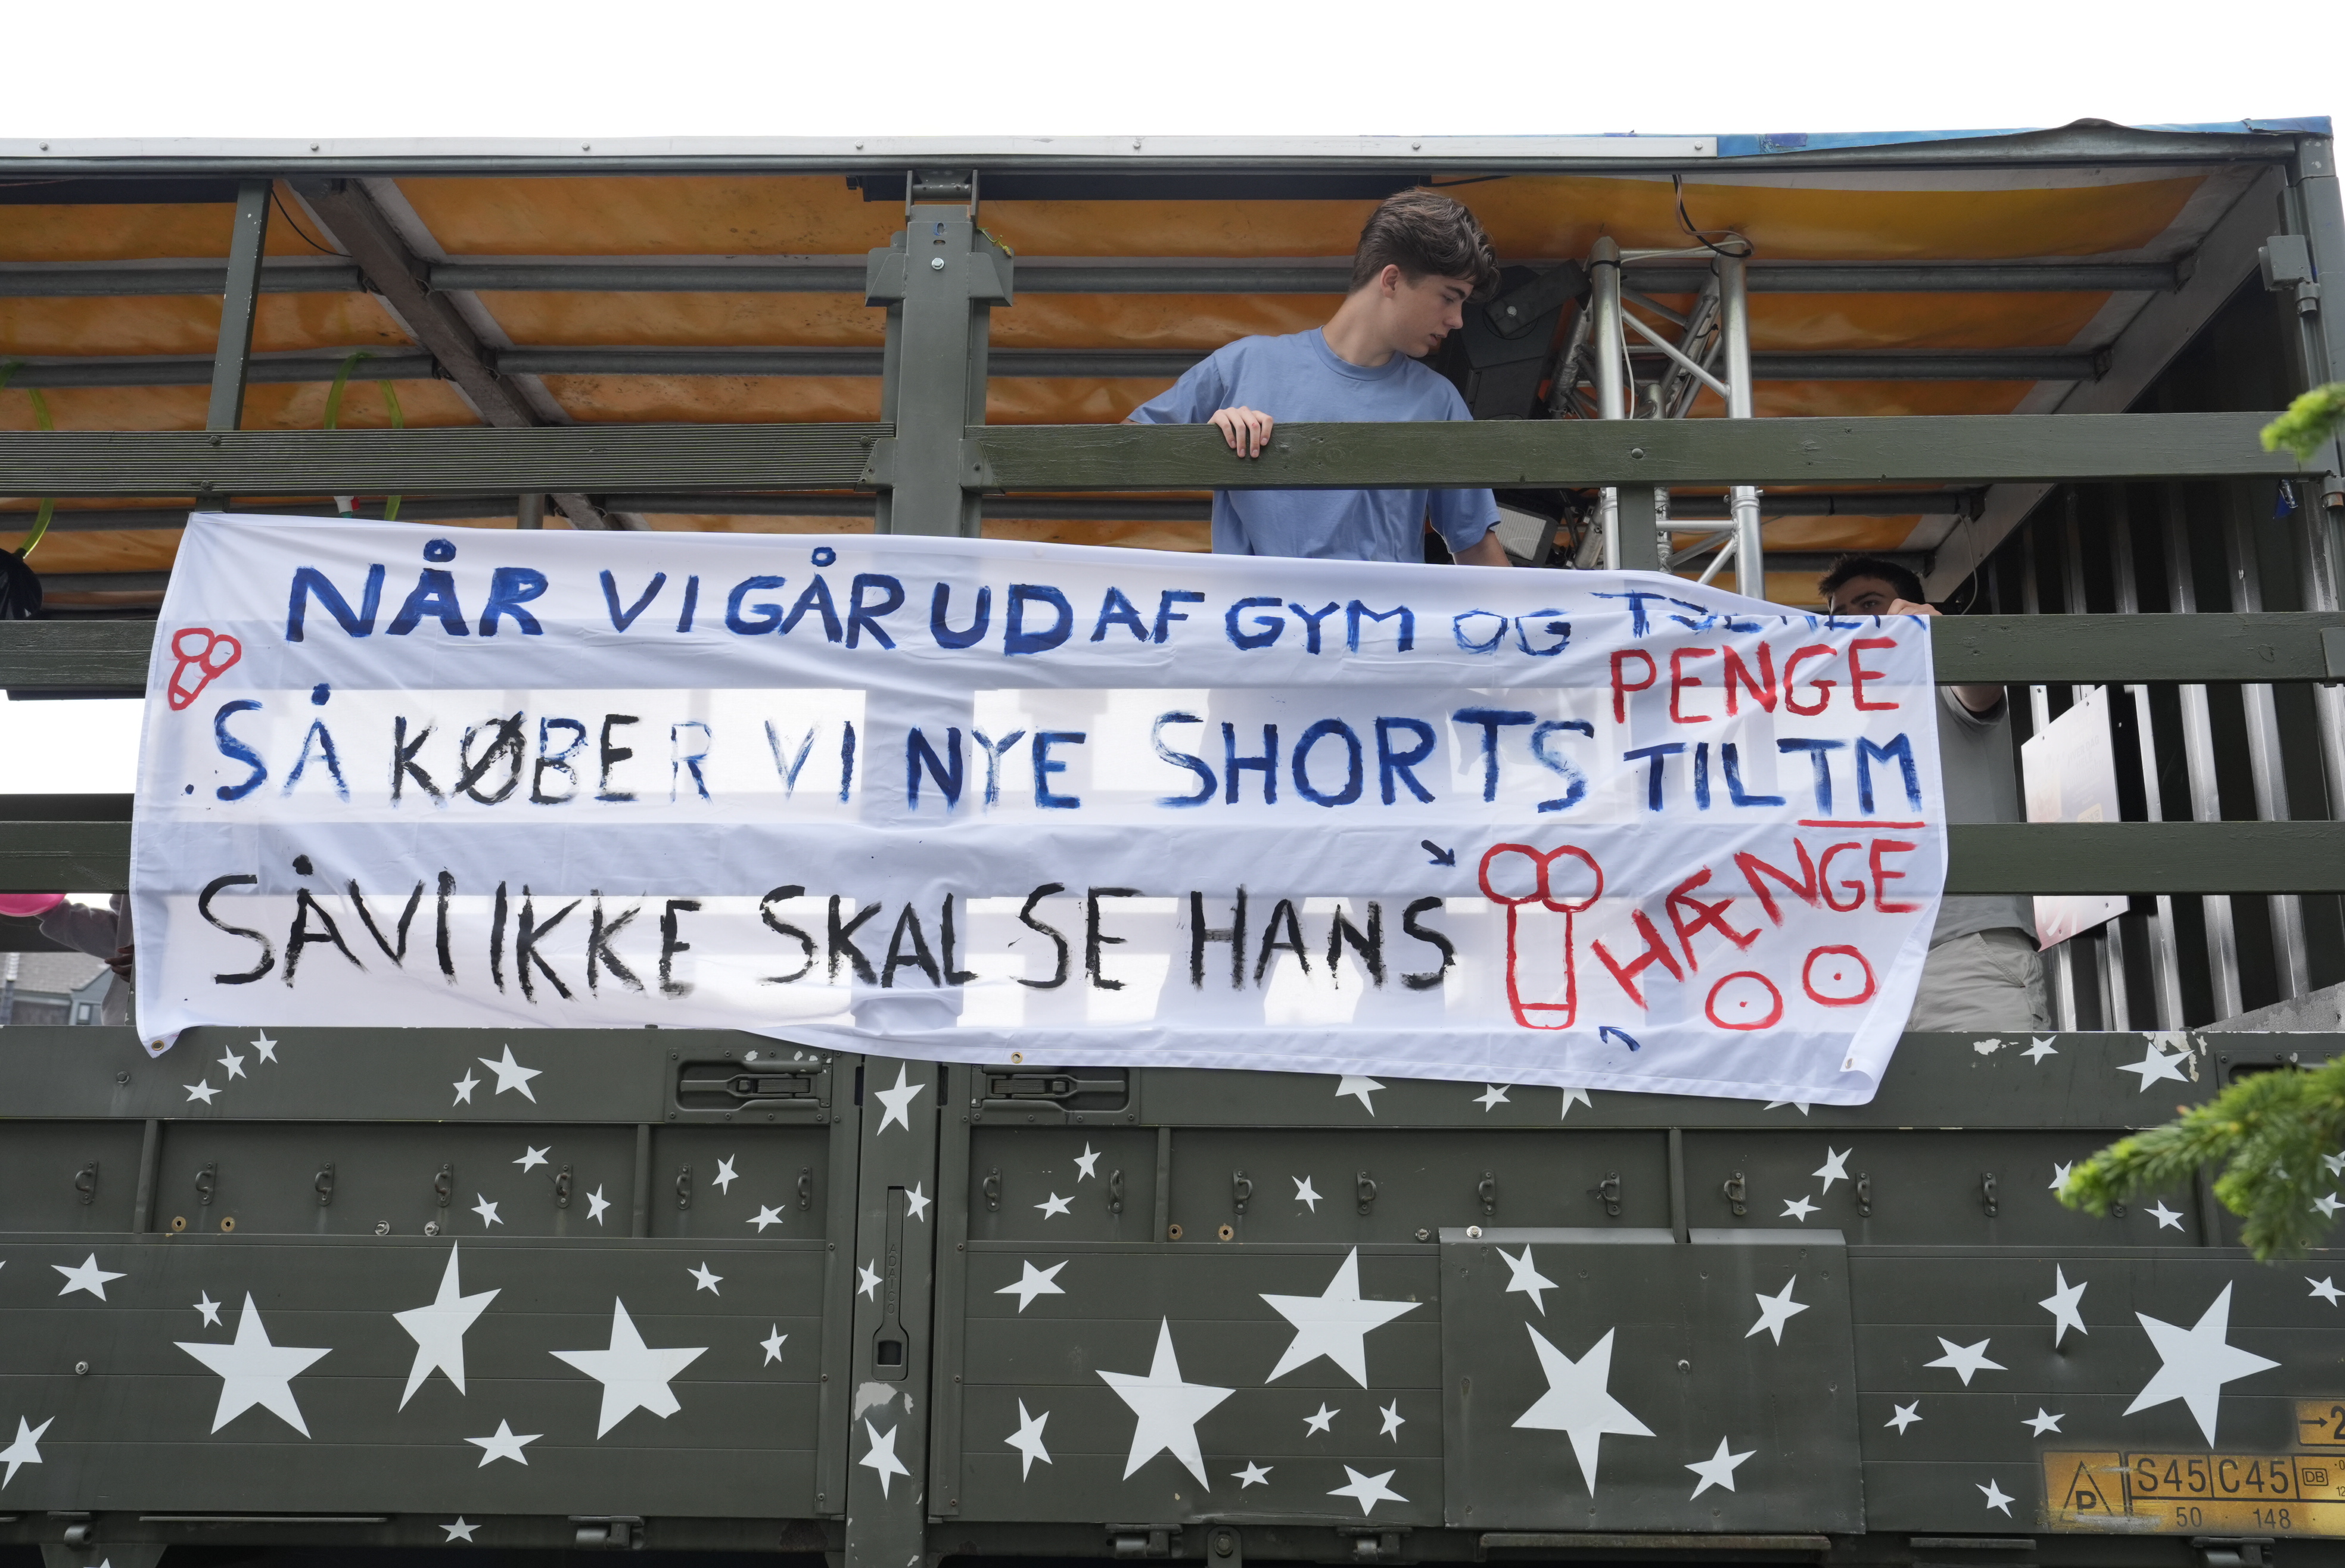 NÅR VI GÅR UD AF GYM OG
PENGE
.SÅ KØBER VI NYE SHORTS TIL TM
SÅ VI IKKE SKAL SE HANS
HÆNGE
S45 C45 DB
50 148